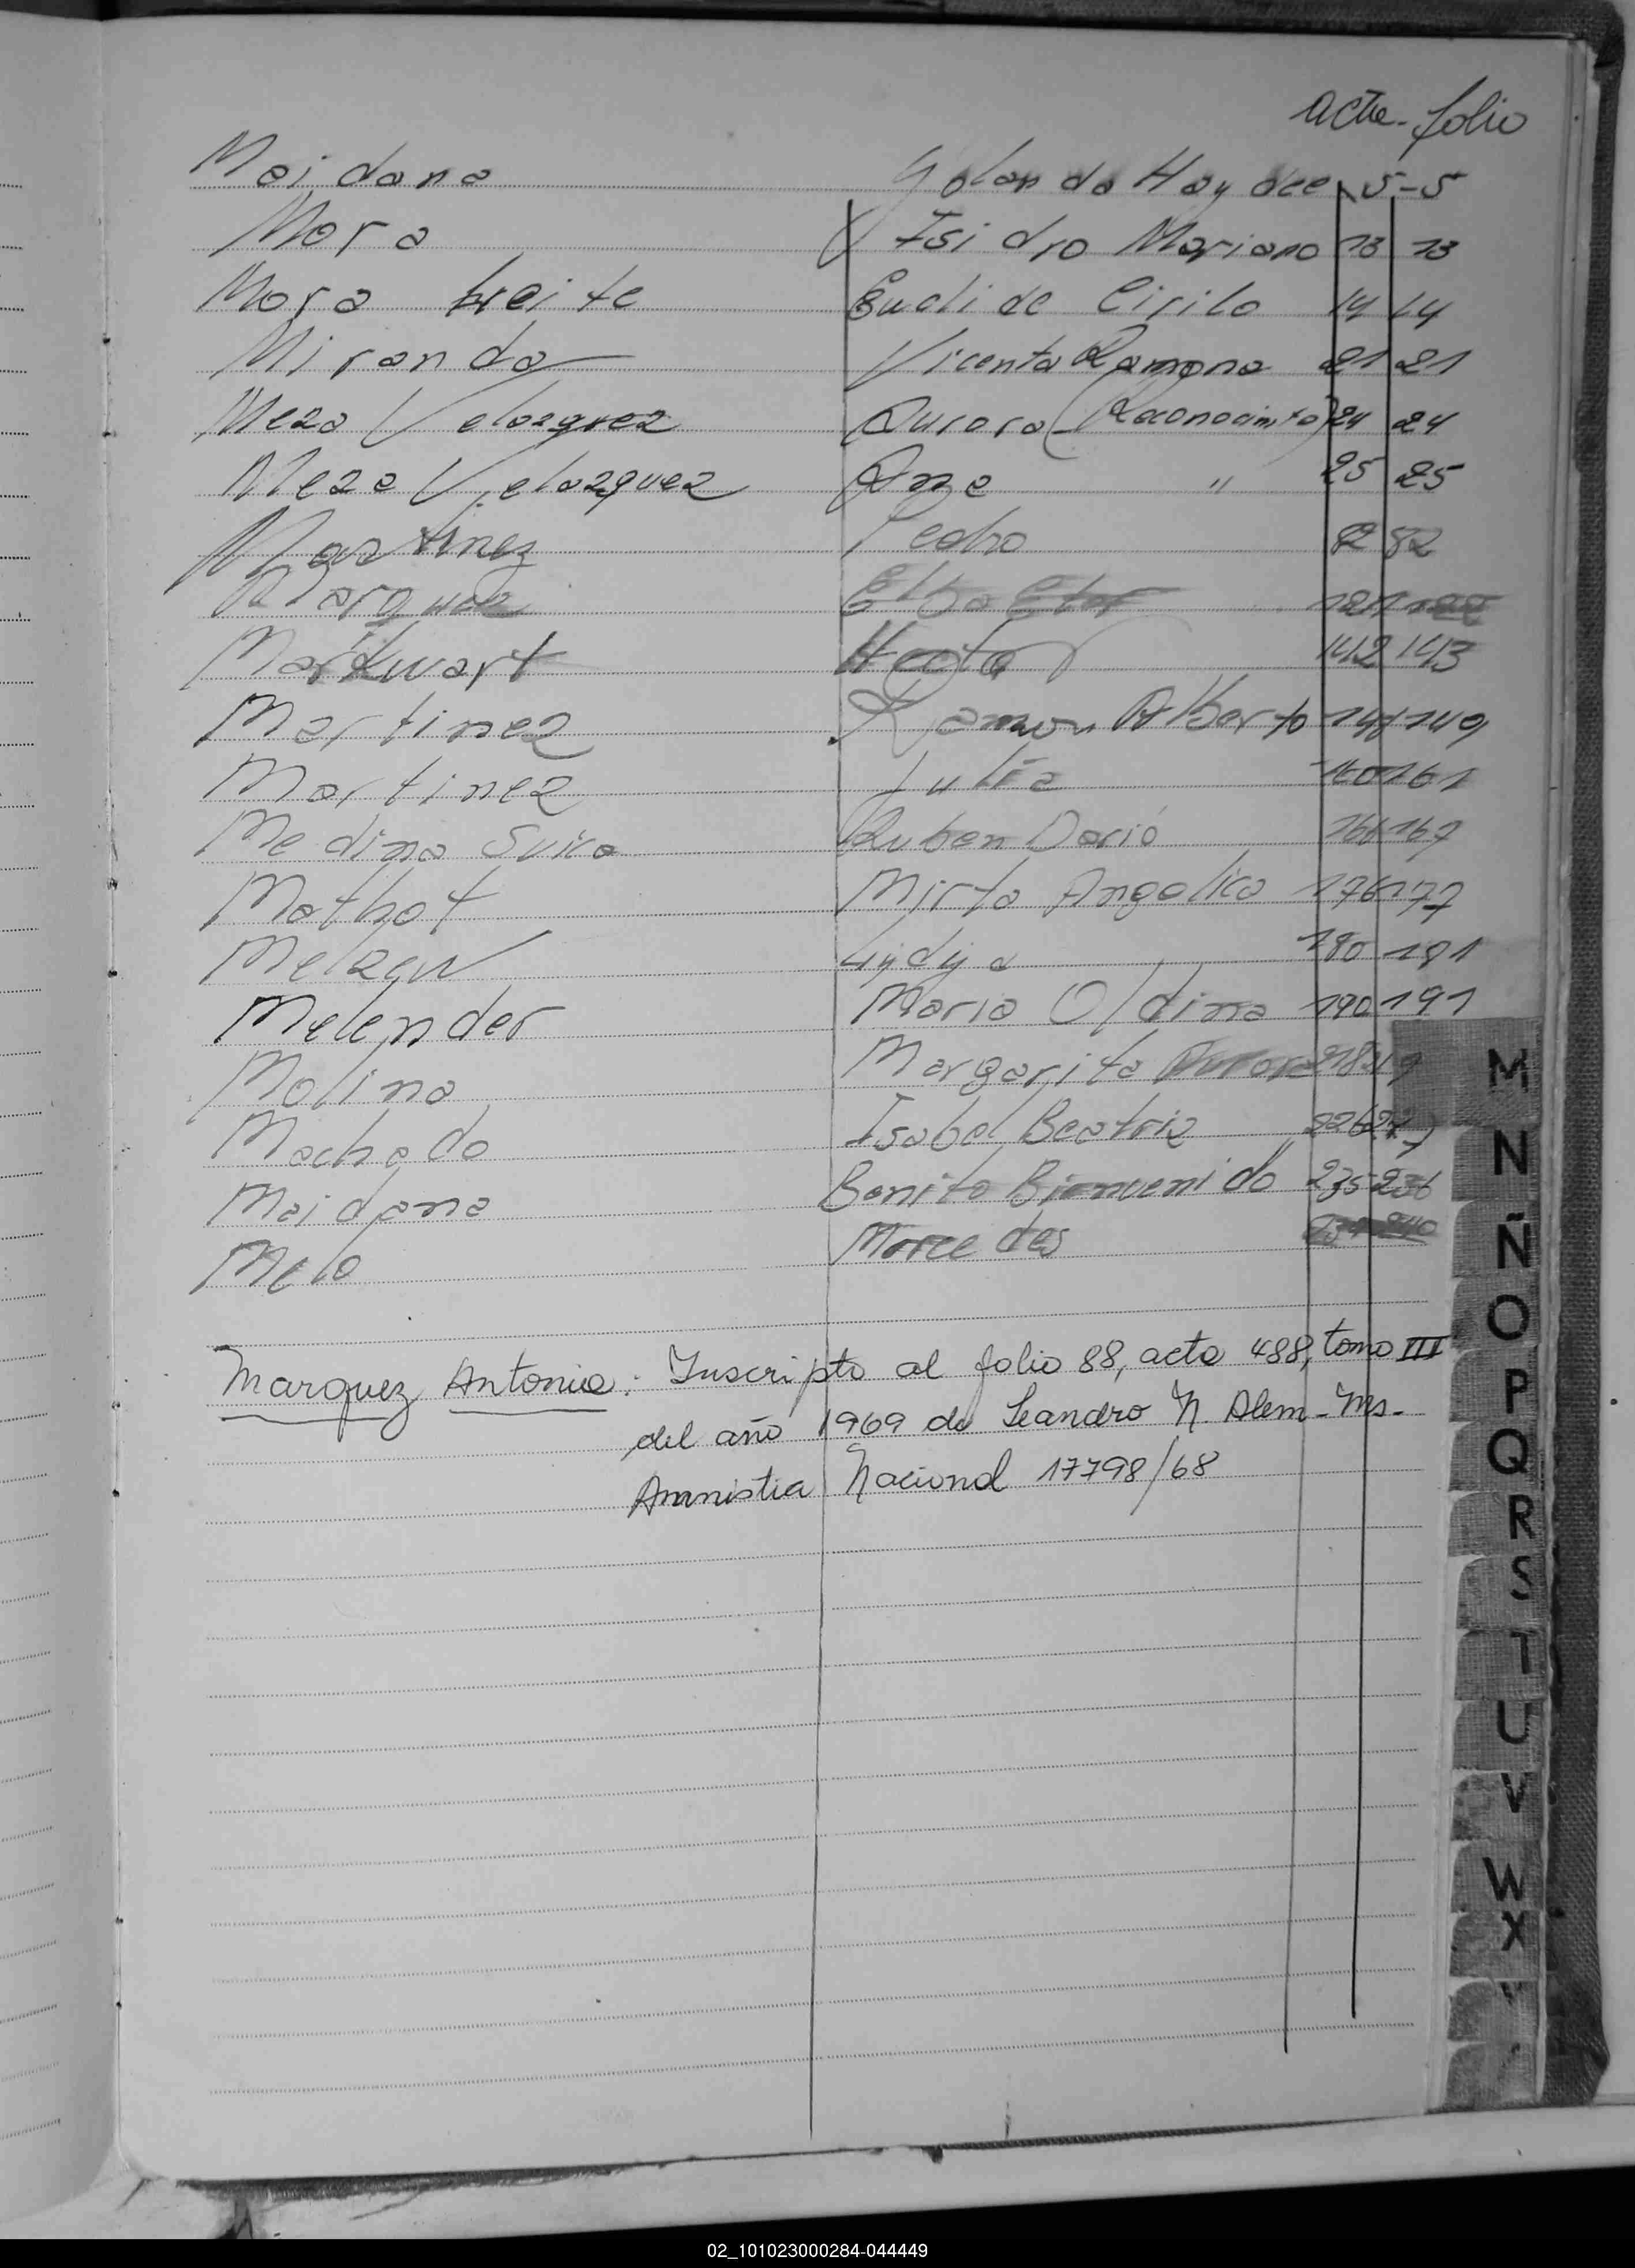 acta - folio
Maidana Yolanda Haydee 5-5
Mora Isidro Mariano 13 13
Mora Leite Euclide Cirilo 14 14
Miranda Vicenta Ramona 21 21
Meza Velazquez Aurora (Reconocimto) 24 24
Meza Velazquez Ana " 25 25
Martinez Pedro 82 82
Marquez Elba
Markwart Hector 142 143
Martinez Ramon Alberto 148 149
Martinez Julia 160 161
Medina Ruben Dario 166 167
Mathot Mirta Angelica 176 177
Lydya 180 181
Melender Maria Oldina 190 191
Molina Margarita 218 219
Machado Isabel Beatriz 226 227
Maidana Benito Bienvenido 235 236
Melo Mercedes 239 240
Marquez Antonia: Inscripto al folio 88, acta 488, tomo III
del año 1969 de Leandro N. Alem - Ms.
Amnistia Nacional 17798/68
M
N
Ñ
O
P
Q
R
S
T
U
V
W
X
02_101023000284-044449